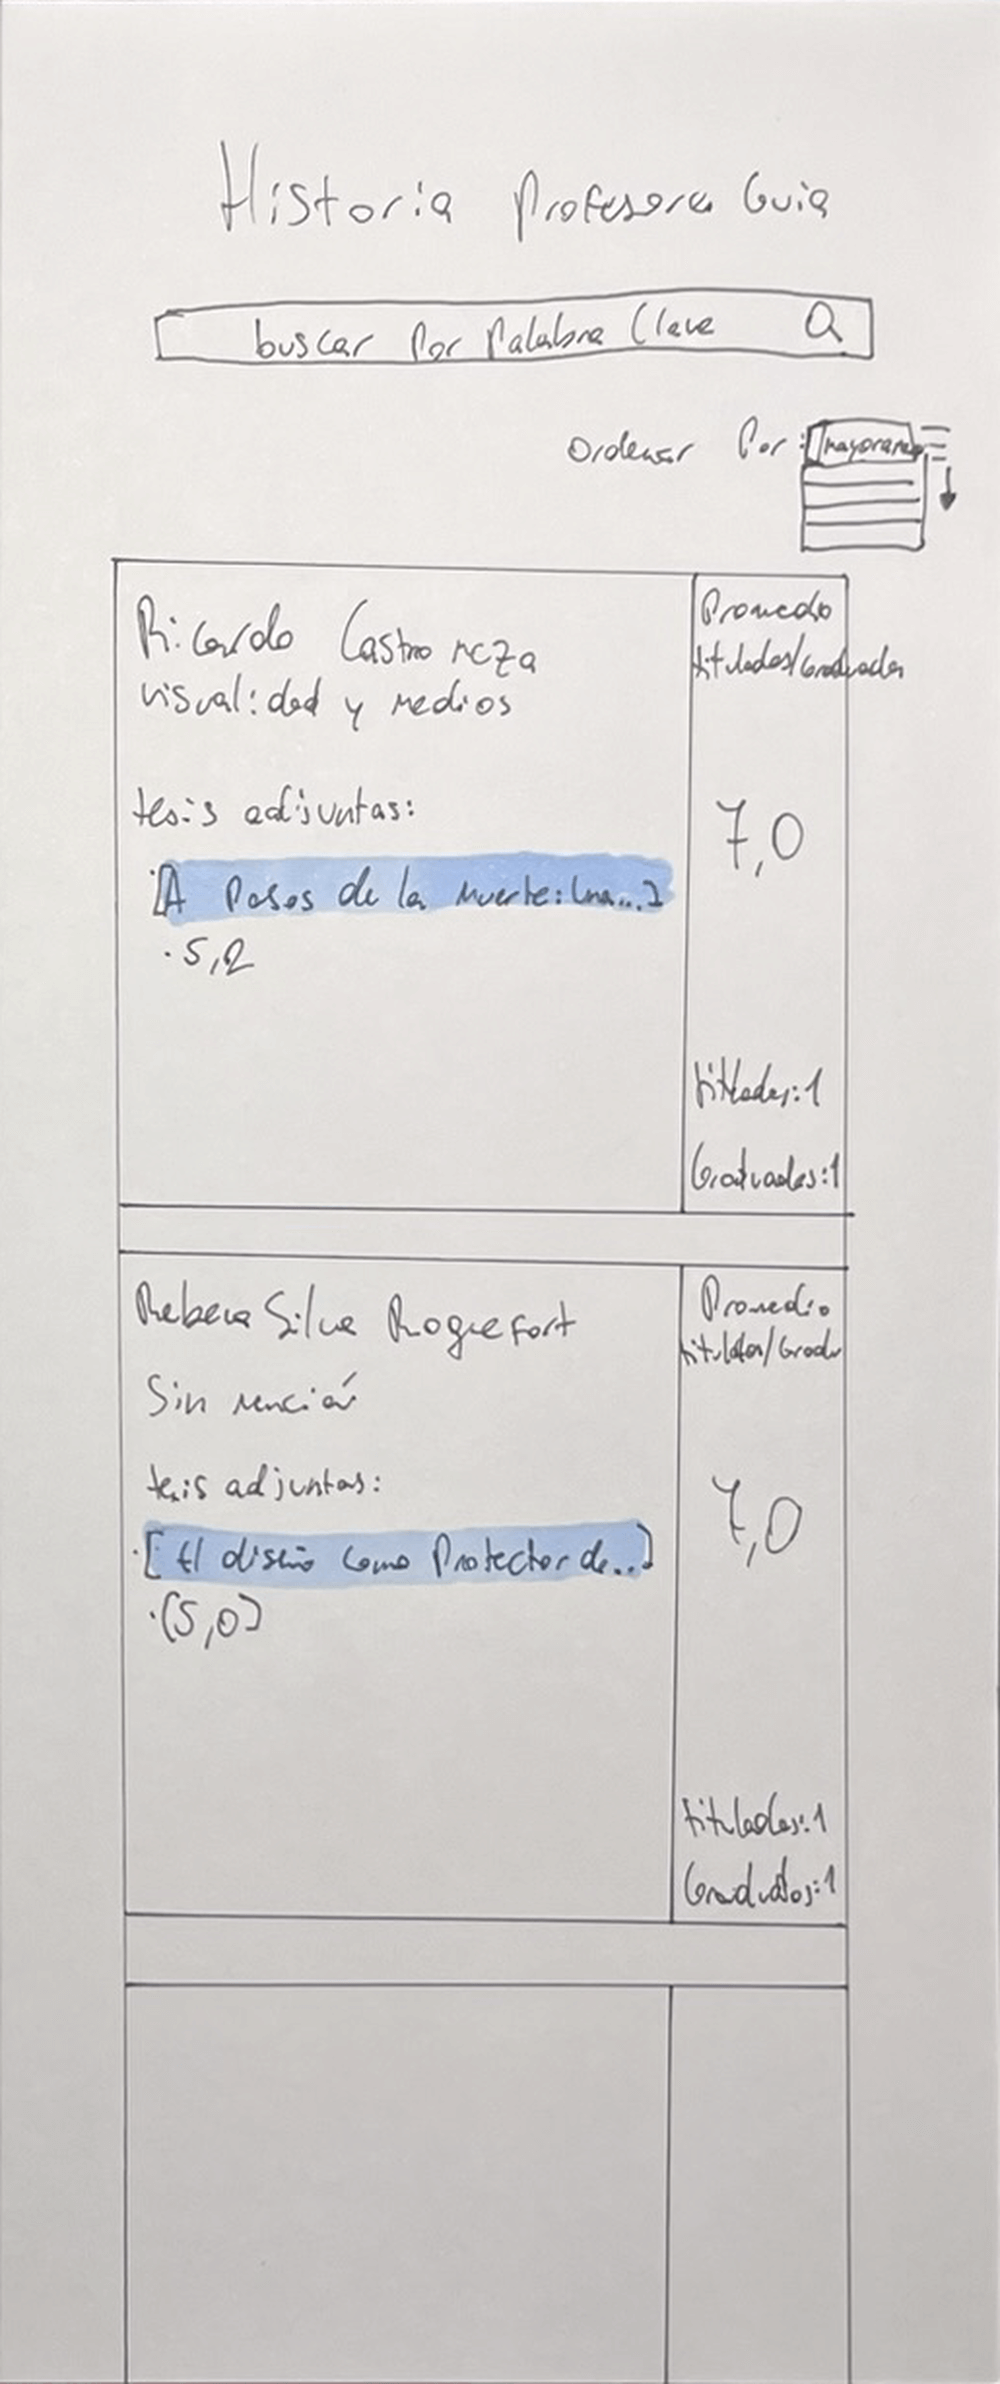 Historia Profesora Guia
buscar Por Palabra Clave
Ordenar Por:
Ricardo Castro
visualidad y medios
tesis adjuntas:
[A Pasos de la Muerte: Una...]
· 5,2
Promedio
titulados/Graduados
7,0
titulados: 1
Graduados: 1
Rebeca Silva Roquefort
Sin mención
tesis adjuntas:
· [El diseño como Protector de...]
· (5,0)
Promedio
titulados/Gradu
7,0
titulados: 1
Graduados: 1